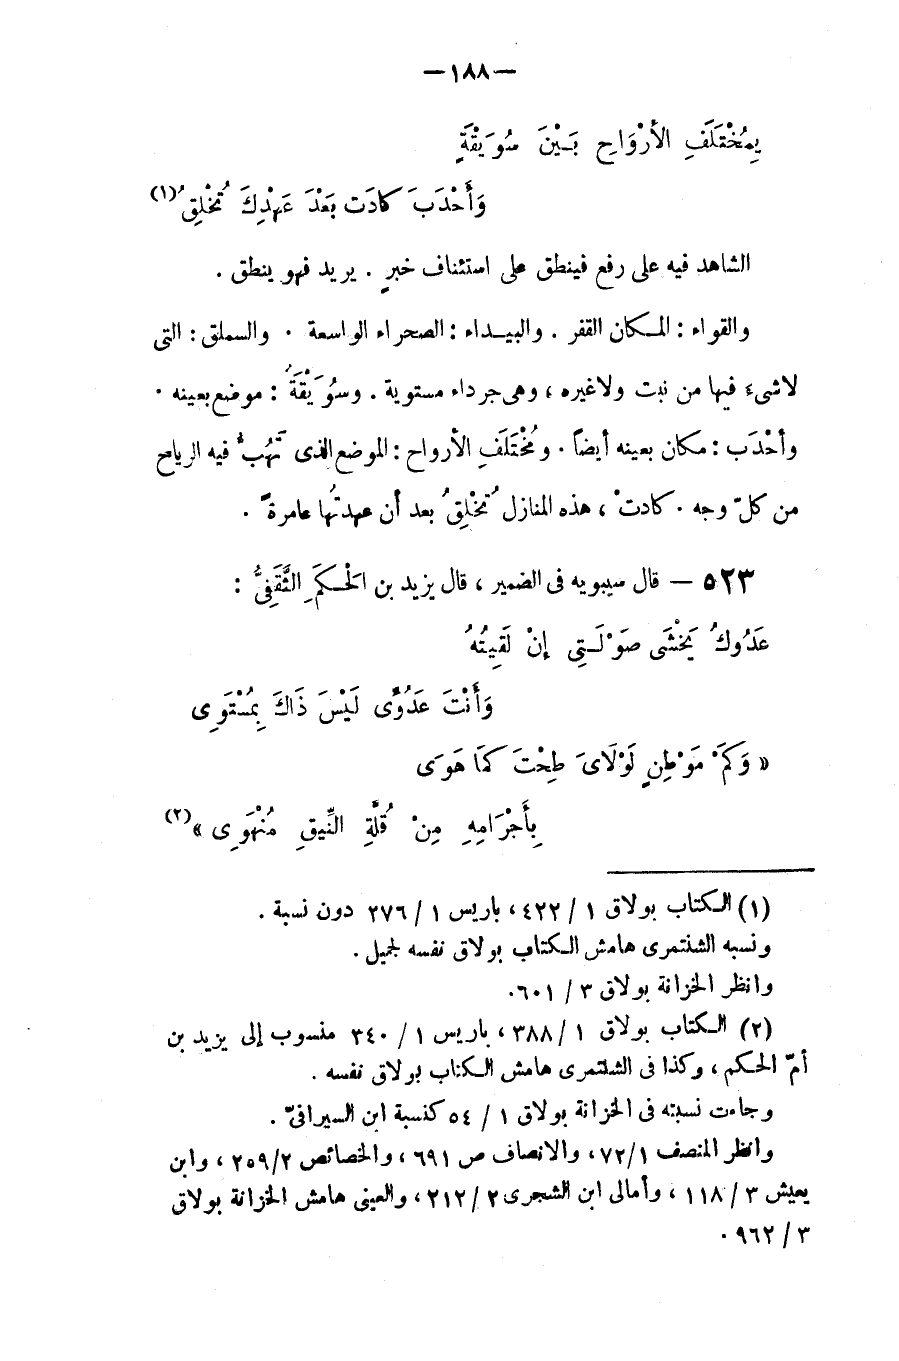 —١٨٨—
بِمُخْتَلَفِ الأَرْوَاحِ بَيْنَ سُوَيْقَةٍ
وَأَحْدَبَ كَادَت بَعْدَ عَهْدِكَ تُخْلِقُ(١)
الشاهد فيه على رفع فينطق على استئناف خبرٍ . يريد فهو ينطق .
والقواء : المكان القفر . والبيداء : الصحراء الواسعة . والسملق : التى
لاشىء فيها من نبت ولاغيره ، وهى جرداء مستوية . وسُوَيْقَةُ : موضع بعينه .
وأحْدَب : مكان بعينه أيضاً . ومُخْتَلَفِ الأرواح : الموضع الذى تَهُبُّ فيه الرياح
من كلّ وجه . كادتْ ، هذه المنازل تُخْلِقُ بعد أن عهدتُها عامرةً .
٥٢٣ — قال سيبويه فى الضمير ، قال يزيد بن الحْكَمِ الثَّقَفِىُّ :
عَدُوكُ يَخْشَى صَوْلَتِى إِنْ لَقِيتُهُ
وَأَنْتَ عَدُوِّى لَيْسَ ذَاكَ بِمُسْتَوِى
« وَكَمَ مَوْطِنٍ لَوْلَاىَ طِحْتَ كَمَا هَوَى
بِأَجْرَامِهِ مِنْ قُلَّةِ النِّيقِ مُنْهَوِى »(٢)
(١) الكتاب بولاق ١ / ٤٢٢ ، باريس ١ / ٢٧٦ دون نسبة .
ونسبه الشنتمرى هامش الكتاب بولاق نفسه لجميل .
وانظر الخزانة بولاق ٣ / ٦٠١.
(٢) الكتاب بولاق ١ / ٣٨٨ ، باريس ١ / ٣٤٠ منسوب إلى يزيد بن
أمّ الحكم ، وكذا فى الشنتمرى هامش الكتاب بولاق نفسه .
وجاءت نسبته فى الخزانة بولاق ١ / ٥٤ كنسبة ابن السيرافىّ .
وانظر المنصف ٧٢/١ ، والانصاف ص ٦٩١ ، والخصائص ٢٥٩/٢ ، وابن
يعيش ٣ / ١١٨ ، وأمالى ابن الشجرى ٢ / ٢١٢ ، والعينى هامش الخزانة بولاق
٣ / ٩٦٢ .